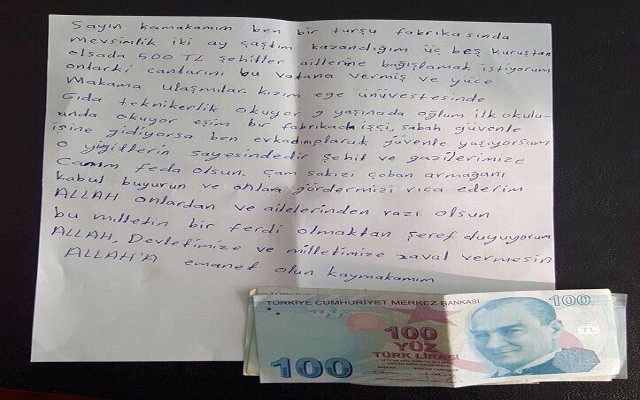 Sayın kamakamım ben bir turşu fabrikasında
mevsimlik iki ay çaştım kazandığım üç beş kuruştan
olsada 500 TL şehitler aillerine bağışlamak istiyorum
onlarki canlarını bu vatana vermiş ve yüce
Makama ulaşmılar. kızım ege ünüvestesinde
Gıda teknikerlik okuyor 9 yaşınada oğlum ilk okulu-
unda okuyor eşim bir fabrikada işçi, sabah güvenle
işine gidiyorsa ben evkadınıolarak güvenle yaşıyorsam
o yiğitlerin sayesindedir şehit ve gazilerimize
Canım feda olsun. çam sakızı çoban armağanı
kabul buyurun ve onlara göndermizi rica ederim
ALLAH onlardan ve ailelerinden razı olsun
bu milletin bir ferdi olmaktan şeref duyuyorum
ALLAH, Devletimize ve milletimize zaval vermesin
ALLAH'A emanet olun kaymakamım
TÜRKİYE CUMHURİYET MERKEZ BANKASI
100
100
YÜZ
TÜRK LİRASI
100
TL